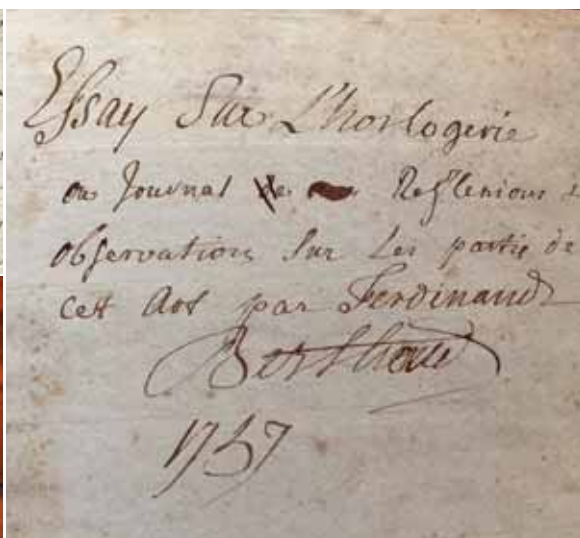 Essay Sur L'horlogerie
ou Journal de Reflexions &
observations Sur Les partie de
cet Art par Ferdinand
Berthoud
1757